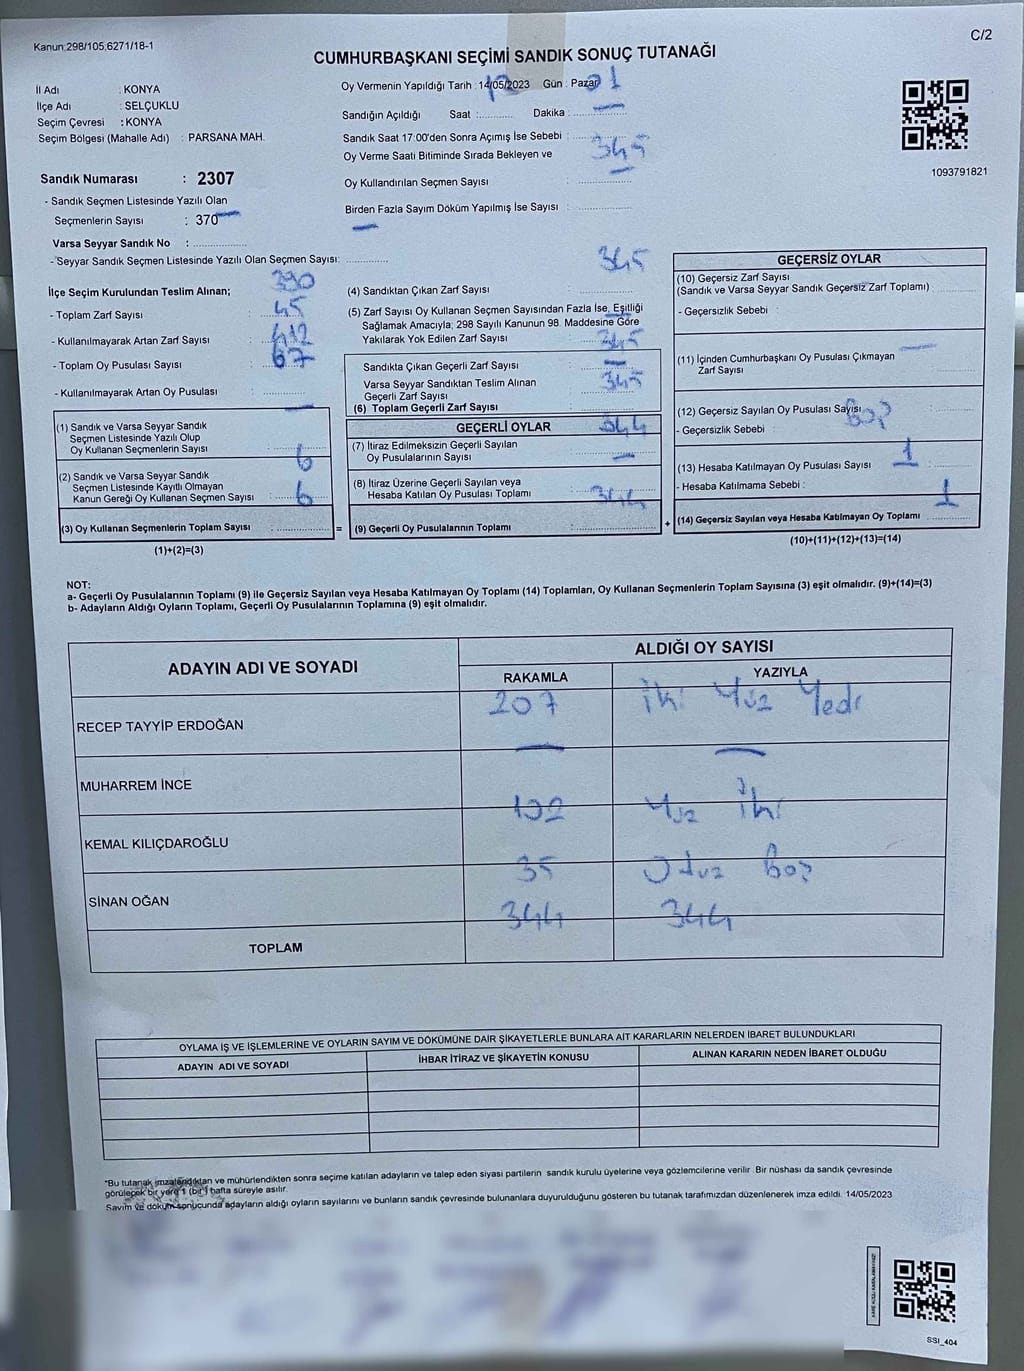 Kanun:298/105,6271/18-1
C/2
CUMHURBAŞKANI SEÇİMİ SANDIK SONUÇ TUTANAĞI
İl Adı : KONYA
İlçe Adı : SELÇUKLU
Seçim Çevresi : KONYA
Seçim Bölgesi (Mahalle Adı) : PARSANA MAH.
Sandık Numarası : 2307
- Sandık Seçmen Listesinde Yazılı Olan
Seçmenlerin Sayısı : 370
Varsa Seyyar Sandık No :
- Seyyar Sandık Seçmen Listesinde Yazılı Olan Seçmen Sayısı:
Oy Vermenin Yapıldığı Tarih : 14/05/2023 Gün : Pazar
Sandığın Açıldığı Saat : Dakika :
Sandık Saat 17:00'den Sonra Açımış İse Sebebi :
Oy Verme Saati Bitiminde Sırada Bekleyen ve
345
Oy Kullandırılan Seçmen Sayısı :
Birden Fazla Sayım Döküm Yapılmış İse Sayısı :
1093791821
İlçe Seçim Kurulundan Teslim Alınan;
390
- Toplam Zarf Sayısı :
45
- Kullanılmayarak Artan Zarf Sayısı :
412
- Toplam Oy Pusulası Sayısı :
67
- Kullanılmayarak Artan Oy Pusulası :
(1) Sandık ve Varsa Seyyar Sandık
Seçmen Listesinde Yazılı Olup
Oy Kullanan Seçmenlerin Sayısı
6
(2) Sandık ve Varsa Seyyar Sandık
Seçmen Listesinde Kayıtlı Olmayan
Kanun Gereği Oy Kullanan Seçmen Sayısı
6
(3) Oy Kullanan Seçmenlerin Toplam Sayısı
=
(1)+(2)=(3)
345
(4) Sandıktan Çıkan Zarf Sayısı :
(5) Zarf Sayısı Oy Kullanan Seçmen Sayısından Fazla İse, Eşitliği
Sağlamak Amacıyla; 298 Sayılı Kanunun 98. Maddesine Göre
Yakılarak Yok Edilen Zarf Sayısı :
345
Sandıkta Çıkan Geçerli Zarf Sayısı :
Varsa Seyyar Sandıktan Teslim Alınan
345
Geçerli Zarf Sayısı
(6) Toplam Geçerli Zarf Sayısı
GEÇERLİ OYLAR
344
(7) İtiraz Edilmeksizin Geçerli Sayılan
Oy Pusulalarının Sayısı
(8) İtiraz Üzerine Geçerli Sayılan veya
Hesaba Katılan Oy Pusulası Toplamı
344
(9) Geçerli Oy Pusulalarının Toplamı
+
GEÇERSİZ OYLAR
(10) Geçersiz Zarf Sayısı
(Sandık ve Varsa Seyyar Sandık Geçersiz Zarf Toplamı) :
- Geçersizlik Sebebi :
(11) İçinden Cumhurbaşkanı Oy Pusulası Çıkmayan
Zarf Sayısı
(12) Geçersiz Sayılan Oy Pusulası Sayısı
- Geçersizlik Sebebi :
(13) Hesaba Katılmayan Oy Pusulası Sayısı
1
- Hesaba Katılmama Sebebi :
1
(14) Geçersiz Sayılan veya Hesaba Katılmayan Oy Toplamı
(10)+(11)+(12)+(13)=(14)
NOT:
a- Geçerli Oy Pusulalarının Toplamı (9) ile Geçersiz Sayılan veya Hesaba Katılmayan Oy Toplamı (14) Toplamları, Oy Kullanan Seçmenlerin Toplam Sayısına (3) eşit olmalıdır. (9)+(14)=(3)
b- Adayların Aldığı Oyların Toplamı, Geçerli Oy Pusulalarının Toplamına (9) eşit olmalıdır.
ADAYIN ADI VE SOYADI
ALDIĞI OY SAYISI
RAKAMLA YAZIYLA
207 İki Yüz Yedi
RECEP TAYYİP ERDOĞAN
MUHARREM İNCE
102 Yüz İki
KEMAL KILIÇDAROĞLU
35 Otuz Beş
SİNAN OĞAN
344 344
TOPLAM
OYLAMA İŞ VE İŞLEMLERİNE VE OYLARIN SAYIM VE DÖKÜMÜNE DAİR ŞİKAYETLERLE BUNLARA AİT KARARLARIN NELERDEN İBARET BULUNDUKLARI
ADAYIN ADI VE SOYADI İHBAR İTİRAZ VE ŞİKAYETİN KONUSU ALINAN KARARIN NEDEN İBARET OLDUĞU
*Bu tutanak imzalandıktan ve mühürlendikten sonra seçime katılan adayların ve talep eden siyasi partilerin sandık kurulu üyelerine veya gözlemcilerine verilir. Bir nüshası da sandık çevresinde
görülecek bir yere 1 (bir) hafta süreyle asılır.
Sayım ve döküm sonucunda adayların aldığı oyların sayılarını ve bunların sandık çevresinde bulunanlara duyurulduğunu gösteren bu tutanak tarafımızdan düzenlenerek imza edildi. 14/05/2023
SSI_404